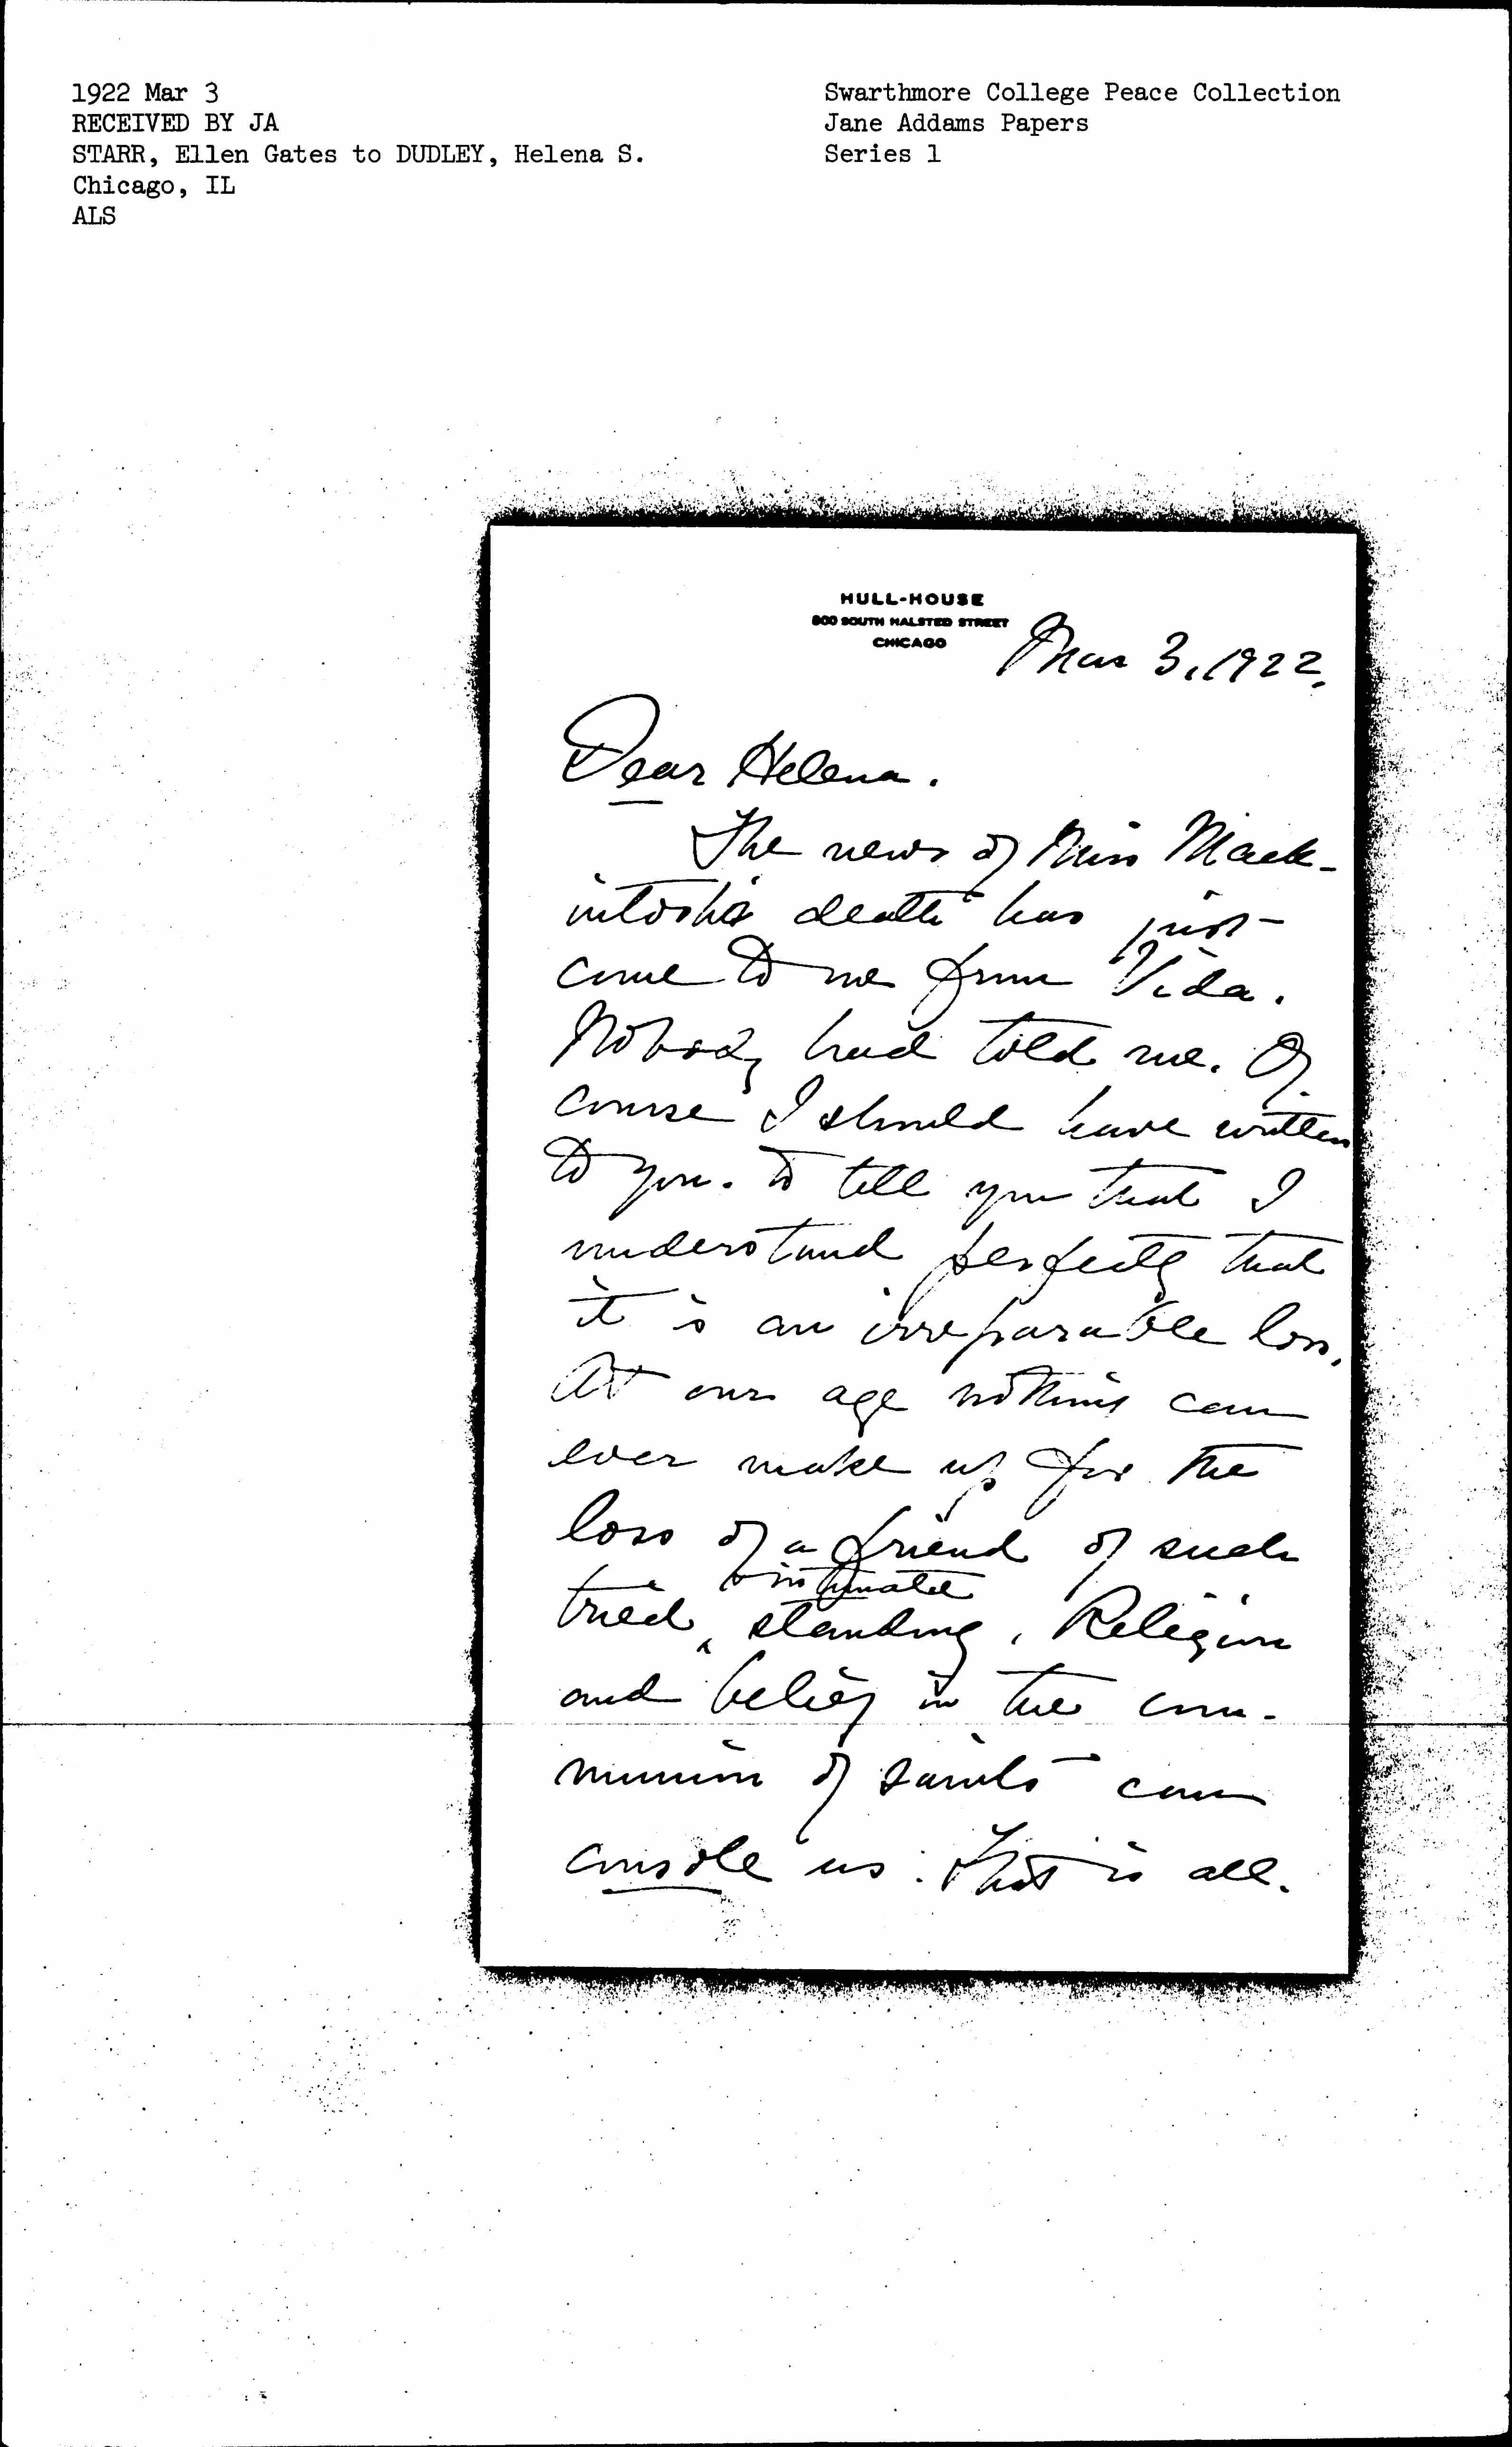 1922 Mar 3
RECEIVED BY JA
STARR, Ellen Gates to DUDLEY, Helena S.
Chicago, IL
ALS
Swarthmore College Peace Collection
Jane Addams Papers
Series 1
HULL-HOUSE
800 SOUTH HALSTED STREET
CHICAGO
Mar 3, 1922.
Dear Helena.
The news of Miss Mack-
intosh's death has just
come to me from Vida.
Nobody had told me. Of
course I should have written
to you. to tell you that I
understand perfectly that
it is an irreparable loss.
At our age nothing can
ever make up for the
loss of a friend of such
tried & intimate standing. Religion
and belief in the com-
munion of saints can
console us: that is all.